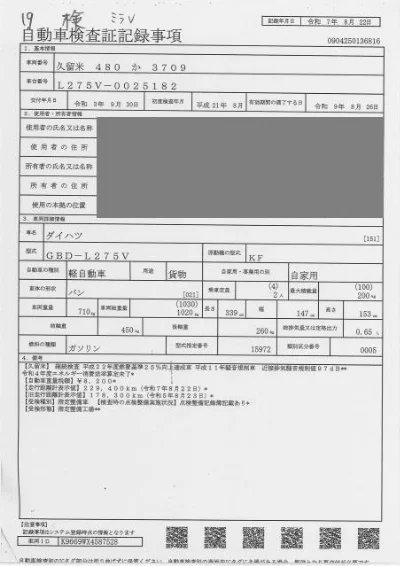 19 検 ミラV
記録年月日 令和 7年 8月 22日
自動車検査証記録事項 0904250136816
1. 基本情報
車両番号 久留米 480 か 3709
車台番号 L275V-0025182
交付年月日 令和 3年 9月 30日 初度検査年月 平成 21年 8月 有効期間の満了する日 令和 9年 8月 26日
2. 使用者・所有者情報
使用者の氏名又は名称
使用者の住所
所有者の氏名又は名称
所有者の住所
使用の本拠の位置
3. 車両詳細情報
車名 ダイハツ [151]
型式 GBD-L275V 原動機の型式 KF
自動車の種別 軽自動車 用途 貨物 自家用・事業用の別 自家用
車体の形状 バン [021] 乗車定員 (4) 2人 最大積載量 (100) 200kg
車両重量 710kg 車両総重量 (1030) 1020kg 長さ 339cm 幅 147cm 高さ 153cm
前軸重 450kg 後軸重 260kg 総排気量又は定格出力 0.65 L
燃料の種類 ガソリン 型式指定番号 15972 類別区分番号 0005
4. 備考
【久留米】 継続検査 平成22年度燃費基準25%向上達成車 平成11年騒音規制車 近接排気騒音規制値974B**
令和4年度エネルギー消費効率算定未了*
【自動車重量税額】¥8,200*
【走行距離計表示値】229,400km(令和7年8月22日)*
【旧走行距離計表示値】178,300km(令和5年8月23日)*
【受検種別】指定整備車 【検査時の点検整備実施状況】点検整備記録簿記載あり*
【受検形態】指定整備工場**
【注意事項】
記録事項はシステム登録時点の情報となります
車両ID K9669WX4587528